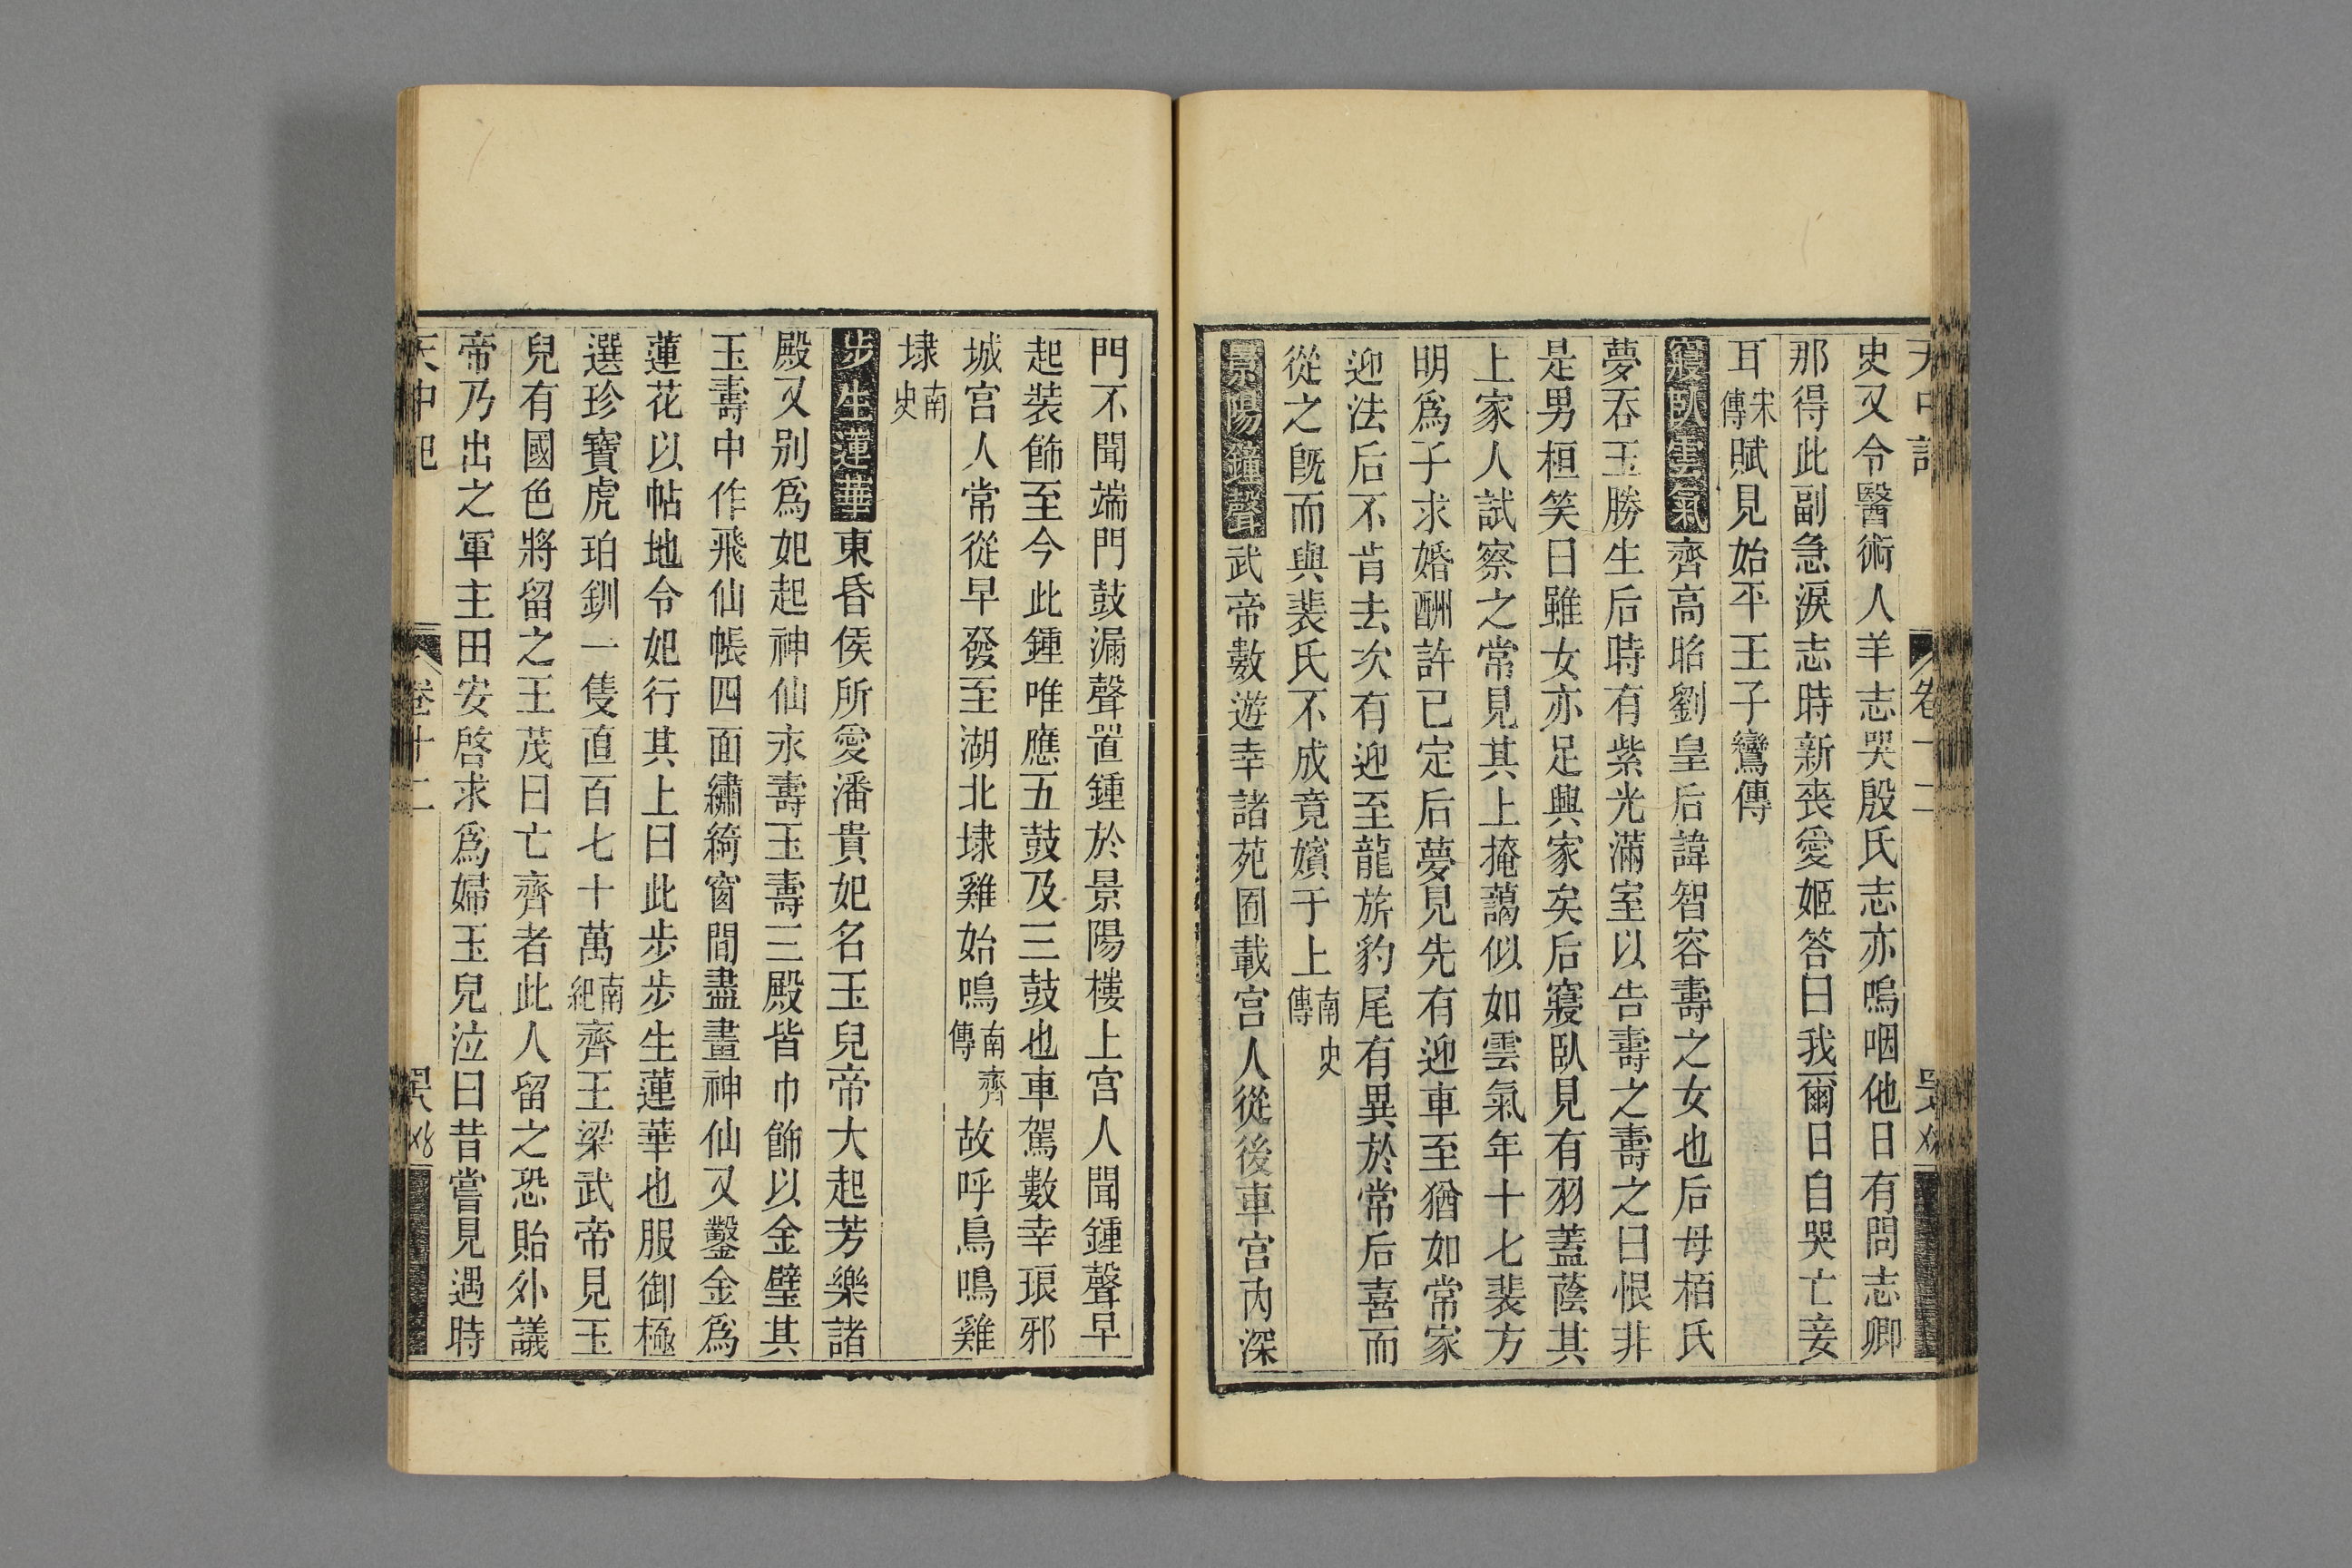 史又令醫術人羊志哭殷氏志亦嗚咽他日有問志卿
那得此副急淚志時新喪愛姬答曰我爾日自哭亡妾
耳宋傳賦見始平王子鸞傳
寢臥雲氣齊高昭劉皇后諱智容壽之女也后母栢氏
夢吞玉勝生后時有紫光滿室以告壽之壽之曰恨非
是男桓笑曰雖女亦足興家矣后寢臥見有羽蓋蔭其
上家人試察之常見其上掩藹似如雲氣年十七裴方
明爲子求婚酬許已定后夢見先有迎車至猶如常家
迎法后不肯去次有迎至龍旂豹尾有異於常后喜而
從之旣而與裴氏不成竟嬪于上南史傳
景陽鐘聲武帝數遊幸諸苑囿載宮人從後車宮內深
門不聞端門鼓漏聲置鍾於景陽樓上宮人聞鍾聲早
起裝飾至今此鍾唯應五鼓及三鼓也車駕數幸琅邪
城宮人常從早發至湖北埭雞始鳴南齊傳故呼鳥鳴雞
埭南史
步生蓮華東昏侯所愛潘貴妃名玉兒帝大起芳樂諸
殿又別爲妃起神仙永壽玉壽三殿皆巾飾以金璧其
玉壽中作飛仙帳四面繡綺窗間盡畫神仙又鑿金爲
蓮花以帖地令妃行其上曰此步步生蓮華也服御極
選珍寶虎珀釧一隻直百七十萬南紀齊王梁武帝見玉
兒有國色將留之王茂曰亡齊者此人留之恐貽外議
帝乃出之軍主田安啓求爲婦玉兒泣曰昔嘗見遇時
卷十二